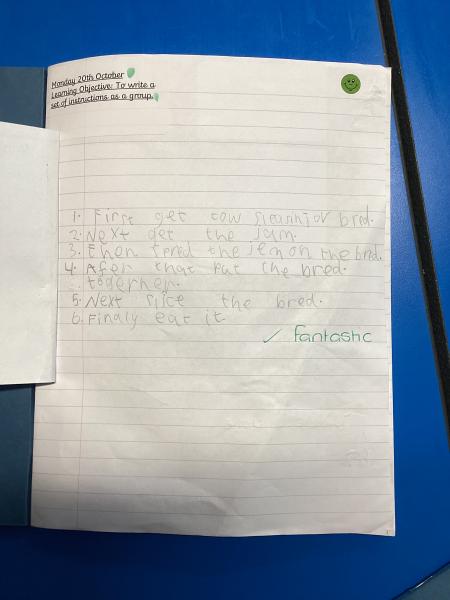 Monday 20th October
Learning Objective: To write a
set of instructions as a group.
1. First get tow of bred.
2. Next get the jam.
3. then spred the jem on the bred.
4. After that put the bred.
togerher.
5. Next slice the bred.
6. Finaly eat it
✓ fantastic